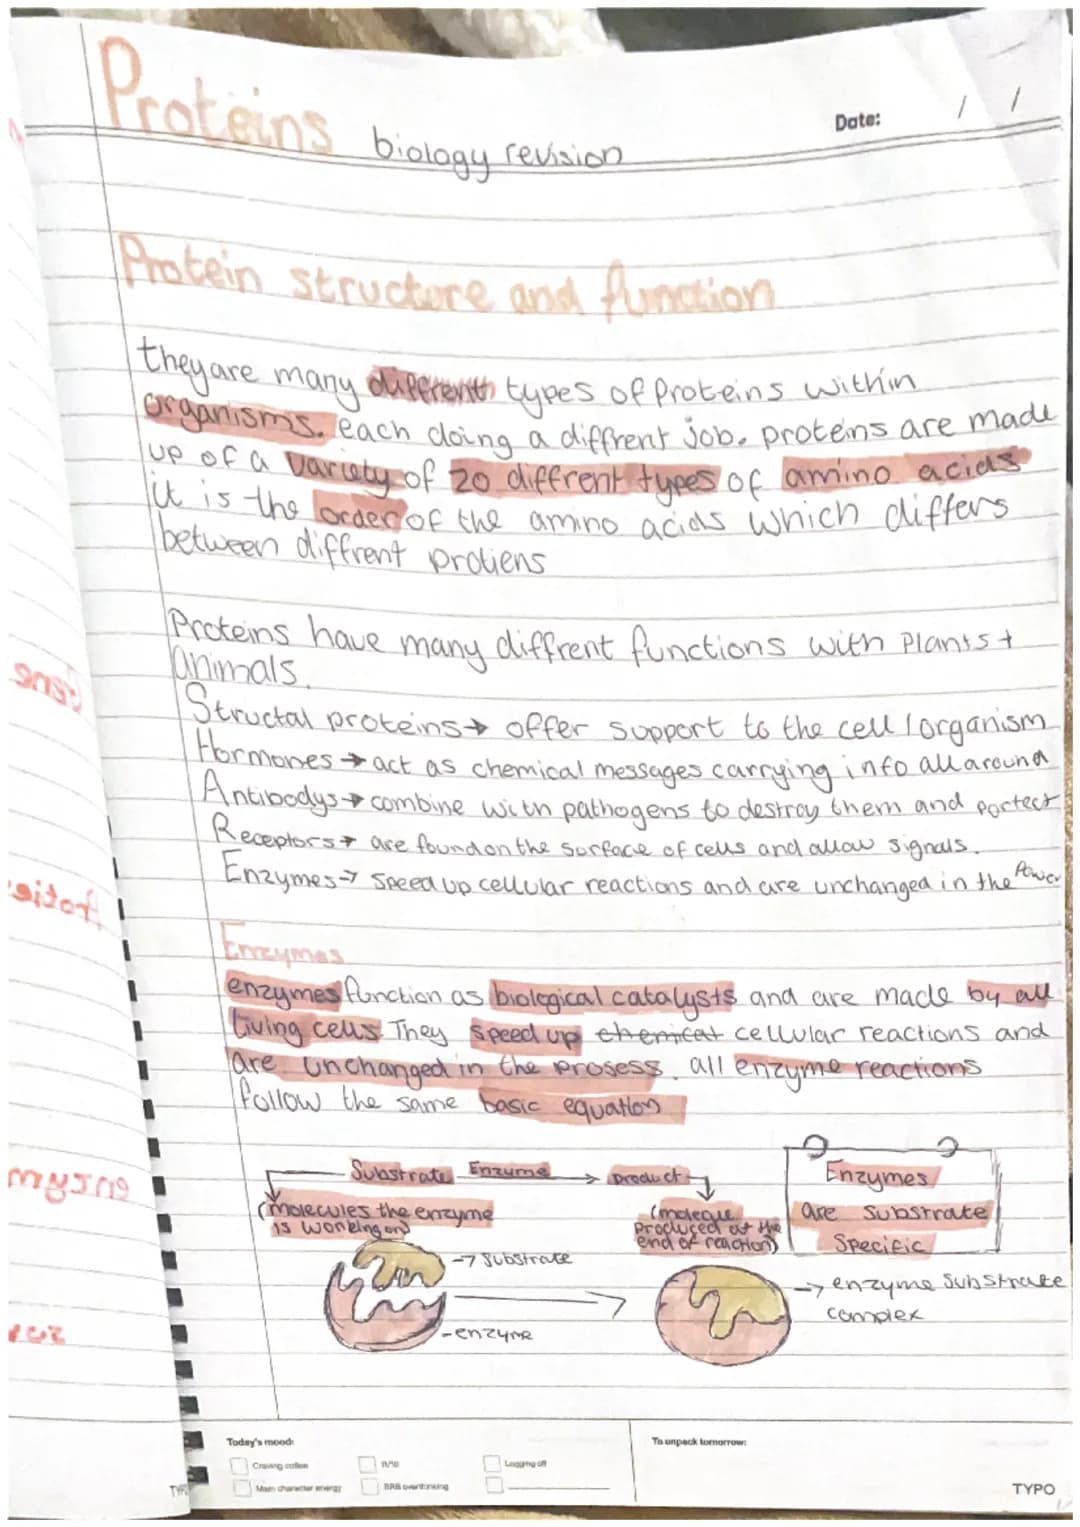 Proteins
biology revision
Date: / /
Protein structure and function
they are many different types of proteins within
organisms. each doing a diffrent job. proteins are made
up of a variety of 20 diffrent types of amino acids
it is the order of the amino acids which differs
between diffrent protiens
Proteins have many diffrent functions with Plants +
animals.
Structal proteins → offer support to the cell / organism
Hormones → act as chemical messages carrying info all around
Antibodys → combine with pathogens to destroy them and portect
Receptors → are found on the surface of cells and allow signals.
Enzymes → speed up cellular reactions and are unchanged in the
Enzymes
enzymes function as biological catalysts and are made by all
living cells. They speed up chemical cellular reactions and
are unchanged in the prosess. all enzyme reactions
follow the same basic equation
Substrate Enzyme → product
(molecules the enzyme
is working on)
(molecule
produced at the
end of reaction)
Enzymes
are substrate
Specific
→ substrate
- enzyme
→ enzyme substrate
complex
Today's mood:
Craving coffee
11/10
Logging off
Main character energy
BRB overthinking
To unpack tomorrow:
TYPO